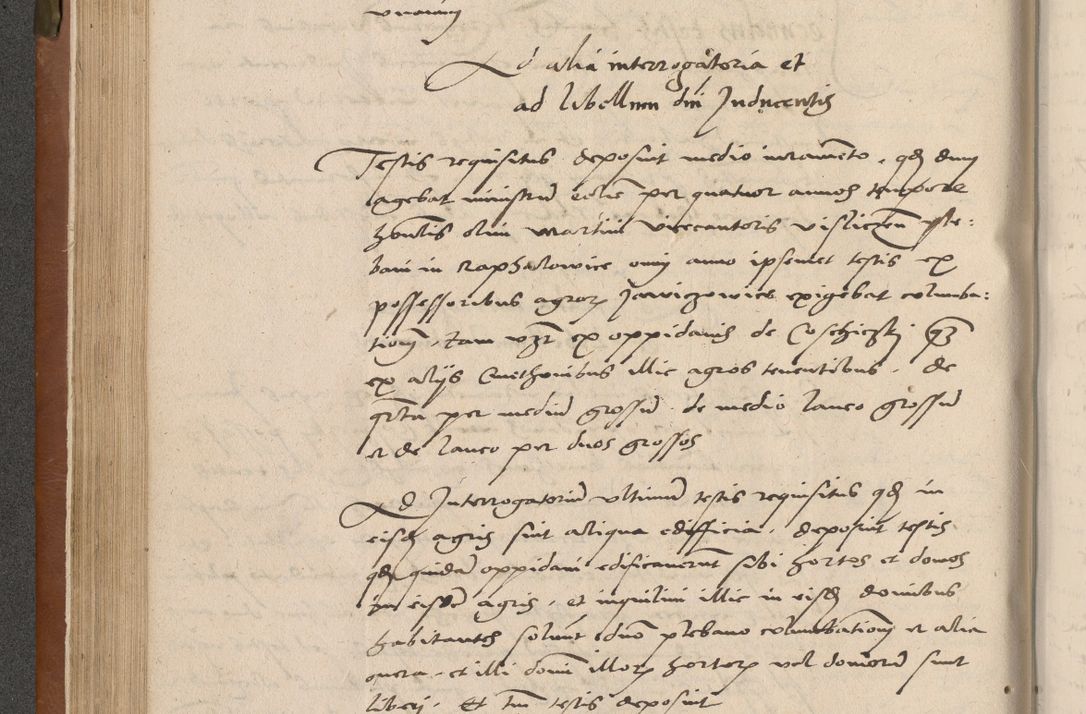 Ad alia interrogatoria et
ad libellum dni Inducentis
Testis requisitus deposuit medio iuramento, qd dum
agebat ministrum ecclie per quatuor annos tempore
honlis olim Martini vicecantoris Vislicien ple:
bani in Raphalowice omni anno ipsemet testis ex
possessoribus agrorum Jawiczowice exigebat columba:
tionem, tam ex oppidanis de Coschiczki
ex alijs Cmethonibus illic agros tenentibus, de
qrta per medium grossum, de medio laneo grossum
et de laneo per duos grossos
Ad Interrogatorium ultimum testis requisitus qd in
eisdem agris sint aliqua edifficia, deposuit testis
qd quidam oppidani edificaverunt sibi hortos et domos
in eisdem agris, et inquilini illic in eisdem domibus
habitantes solvunt dno plebano columbationem et alia
onera, et illi domini illorum hortorum vel domorum sunt
liberi, Et tm testis deposuit